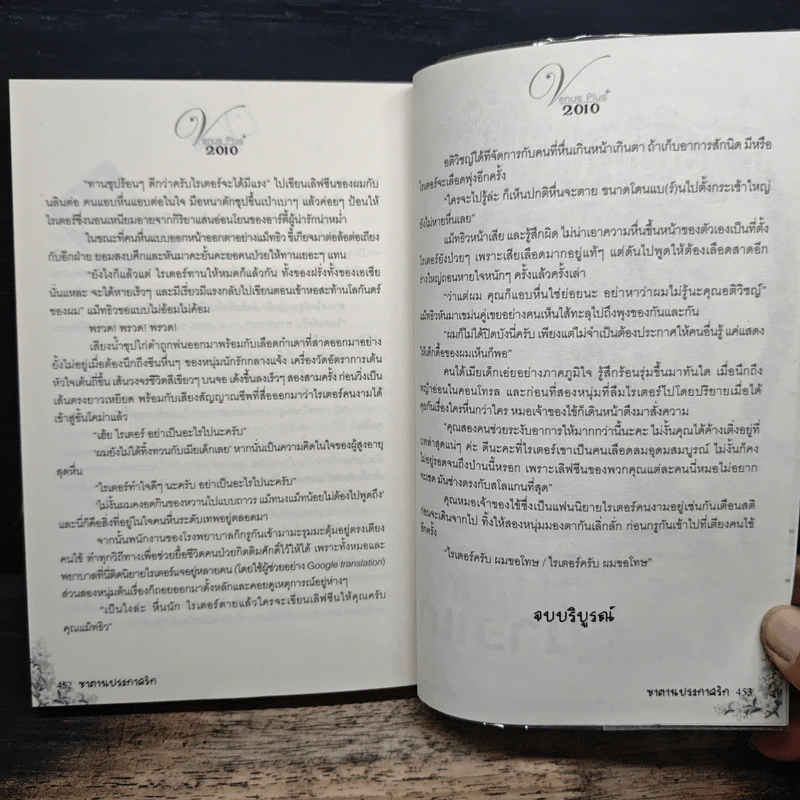 Venus Plus+
2010
"ทานซุปร้อนๆ ดีกว่าครับไรเตอร์จะได้มีแรง" ไปเขียนเลิฟซีนของผมกับ
นลินต่อ คนแอบหื่นแอบต่อในใจ มือหนาตักซุปขึ้นเป่าเบาๆ แล้วค่อยๆ ป้อนให้
ไรเตอร์ซึ่งนอนเหนียมอายจากกิริยาแสนอ่อนโยนของอาร์ตี้ผู้น่ารักน่าหม่ำ
ในขณะที่คนหื่นแบบออกหน้าออกตาอย่างแม็ทธิว ขี้เกียจมาต่อล้อต่อเถียง
กับอีกฝ่าย ยอมสงบศึกและหันมาคะยั้นคะยอคนป่วยให้ทานเยอะๆ แทน
"ยังไงก็แล้วแต่ ไรเตอร์ทานให้หมดก็แล้วกัน ทั้งของฝรั่งทั้งของเอเชีย
นั่นแหละ จะได้หายเร็วๆ และมีเรี่ยวมีแรงกลับไปเขียนตอนเข้าหอสะท้านโลกันตร์
ของผม" แม็ทธิวขอแบบไม่อ้อมไม่ค้อม
พรวด! พรวด! พรวด!
เสียงน้ำซุปไก่ดำถูกพ่นออกมาพร้อมกับเลือดกำเดาที่สาดออกมาอย่าง
ยั้งไม่อยู่เมื่อต้องนึกถึงซีนหื่นๆ ของหนุ่มนักรักกลางแจ้ง เครื่องวัดอัตราการเต้น
หัวใจเต้นถี่ขึ้น เส้นวงจรชีวิตสีเขียวๆ บนจอ เด้งขึ้นลงเร็วๆ สองสามครั้ง ก่อนวิ่งเป็น
เส้นตรงยาวเหยียด พร้อมกับเสียงสัญญาณชีพที่สื่อออกมาว่าไรเตอร์คนงามได้
เข้าสู่ขั้นโคม่าแล้ว
"เฮ้ย ไรเตอร์ อย่าเป็นอะไรไปนะครับ"
'ผมยังไม่ได้ทิ้งทวนกับเมียเด็กเลย' หากนั่นเป็นความคิดในใจของผู้สูงอายุ
สุดหื่น
"ไรเตอร์ทำใจดีๆ นะครับ อย่าเป็นอะไรไปนะครับ"
'ไม่งั้นผมคงอดกินของหวานไปแบบถาวร แม้ทนงแม้ทน้อยไม่ต้องไปพูดถึง'
และนี่ก็คือสิ่งที่อยู่ในใจคนหื่นระดับเทพอยู่ตลอดมา
จากนั้นพนักงานของโรงพยาบาลก็กรูกันเข้ามามะรุมมะตุ้มอยู่ตรงเตียง
คนไข้ ทำทุกวิถีทางเพื่อช่วยยื้อชีวิตคนป่วยกิตติมศักดิ์ไว้ให้ได้ เพราะทั้งหมอและ
พยาบาลที่นี่ติดนิยายไรเตอร์แจอยู่หลายคน (โดยใช้ผู้ช่วยอย่าง Google translation)
ส่วนสองหนุ่มต้นเรื่องก็ถอยออกมาตั้งหลักและคอยดูเหตุการณ์อยู่ห่างๆ
"เป็นไงล่ะ หื่นนัก ไรเตอร์ตายแล้วใครจะเขียนเลิฟซีนให้คุณครับ
คุณแม็ทธิว"
452 ซาตานประกาสริต
Venus Plus+
2010
อติวิชญ์ได้ทีจัดการกับคนที่หื่นเกินหน้าเกินตา ถ้าเก็บอาการสักนิด มีหรือ
ไรเตอร์จะเลือดพุ่งอีกครั้ง
"ใครจะไปรู้ล่ะ ก็เห็นปกติหื่นจะตาย ขนาดโดนแบ(ร์)นไปตั้งกระเช้าใหญ่
ยังไม่หายหื่นเลย"
แม็ทธิวหน้าเสีย และรู้สึกผิด ไม่น่าเอาความหื่นขึ้นหน้าของตัวเองเป็นที่ตั้ง
ไรเตอร์ยังป่วยๆ เพราะเสียเลือดมากอยู่แท้ๆ แต่ดันไปพูดให้ต้องเลือดสาดอีก
ร่างใหญ่ถอนหายใจหนักๆ ครั้งแล้วครั้งเล่า
"ว่าแต่ผม คุณก็แอบหื่นใช่ย่อยนะ อย่าหาว่าผมไม่รู้นะคุณอติวิชญ์"
แม็ทธิวหันมาเขม่นคู่เขยอย่างคนเห็นไส้ทะลุไปถึงพุงของกันและกัน
"ผมก็ไม่ได้ปิดบังนี่ครับ เพียงแต่ไม่จำเป็นต้องประกาศให้คนอื่นรู้ แค่แสดง
ให้เด็กดื้อของผมเห็นก็พอ"
คนได้เมียเด็กเอ่ยอย่างภาคภูมิใจ รู้สึกร้อนรุ่มขึ้นมาทันใด เมื่อนึกถึง
หญ้าอ่อนในคอนโทรล และก่อนที่สองหนุ่มที่ลืมไรเตอร์ไปโดยปริยายเมื่อได้
คุยกันเรื่องใครหื่นกว่าใคร หมอเจ้าของไข้ก็เดินหน้าตึงมาสั่งความ
"คุณสองคนช่วยระงับอาการให้มากกว่านี้นะคะ ไม่งั้นคุณได้ค้างเติ่งอยู่ที่
บทล่าสุดแน่ๆ ค่ะ ดีนะคะที่ไรเตอร์เขาเป็นคนเลือดลมอุดมสมบูรณ์ ไม่งั้นก็คง
ไม่อยู่รอดจนถึงป่านนี้หรอก เพราะเลิฟซีนของพวกคุณแต่ละคนนี่หมอไม่อยาก
จะเซด มันช่างตรงกับสโลแกนที่สุด"
คุณหมอเจ้าของไข้ซึ่งเป็นแฟนนิยายไรเตอร์คนงามอยู่เช่นกันเตือนสติ
ก่อนจะเดินจากไป ทิ้งให้สองหนุ่มมองตากันเลิ่กลั่ก ก่อนกรูกันเข้าไปที่เตียงคนไข้
อีกครั้ง
"ไรเตอร์ครับ ผมขอโทษ / ไรเตอร์ครับ ผมขอโทษ"
จบบริบูรณ์
ซาตานประกาสริต 453